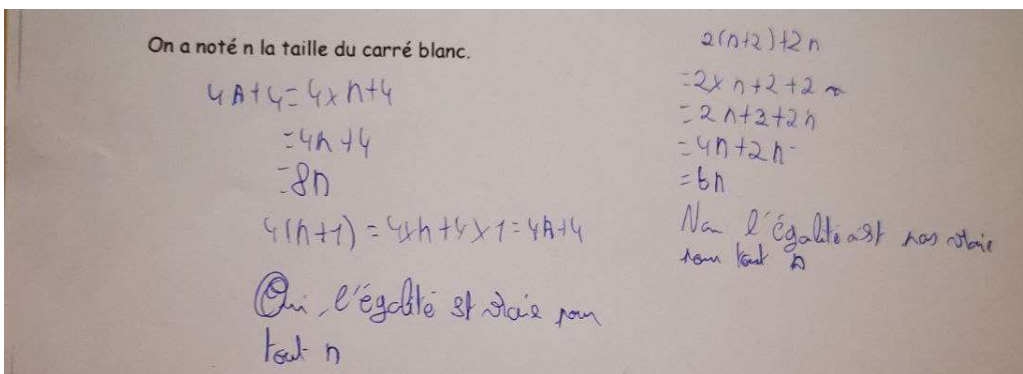 On a noté n la taille du carré blanc.
4n+4=4×n+4
=4n+4
=8n
4(n+1)=4×n+4×1=4n+4
Oui, l'égalité est vraie pour
tout n
2(n+2)+2n
=2×n+2+2n
=2n+2+2n
=4n+2n
=6n
Non l'égalité est pas vraie
pour tout n